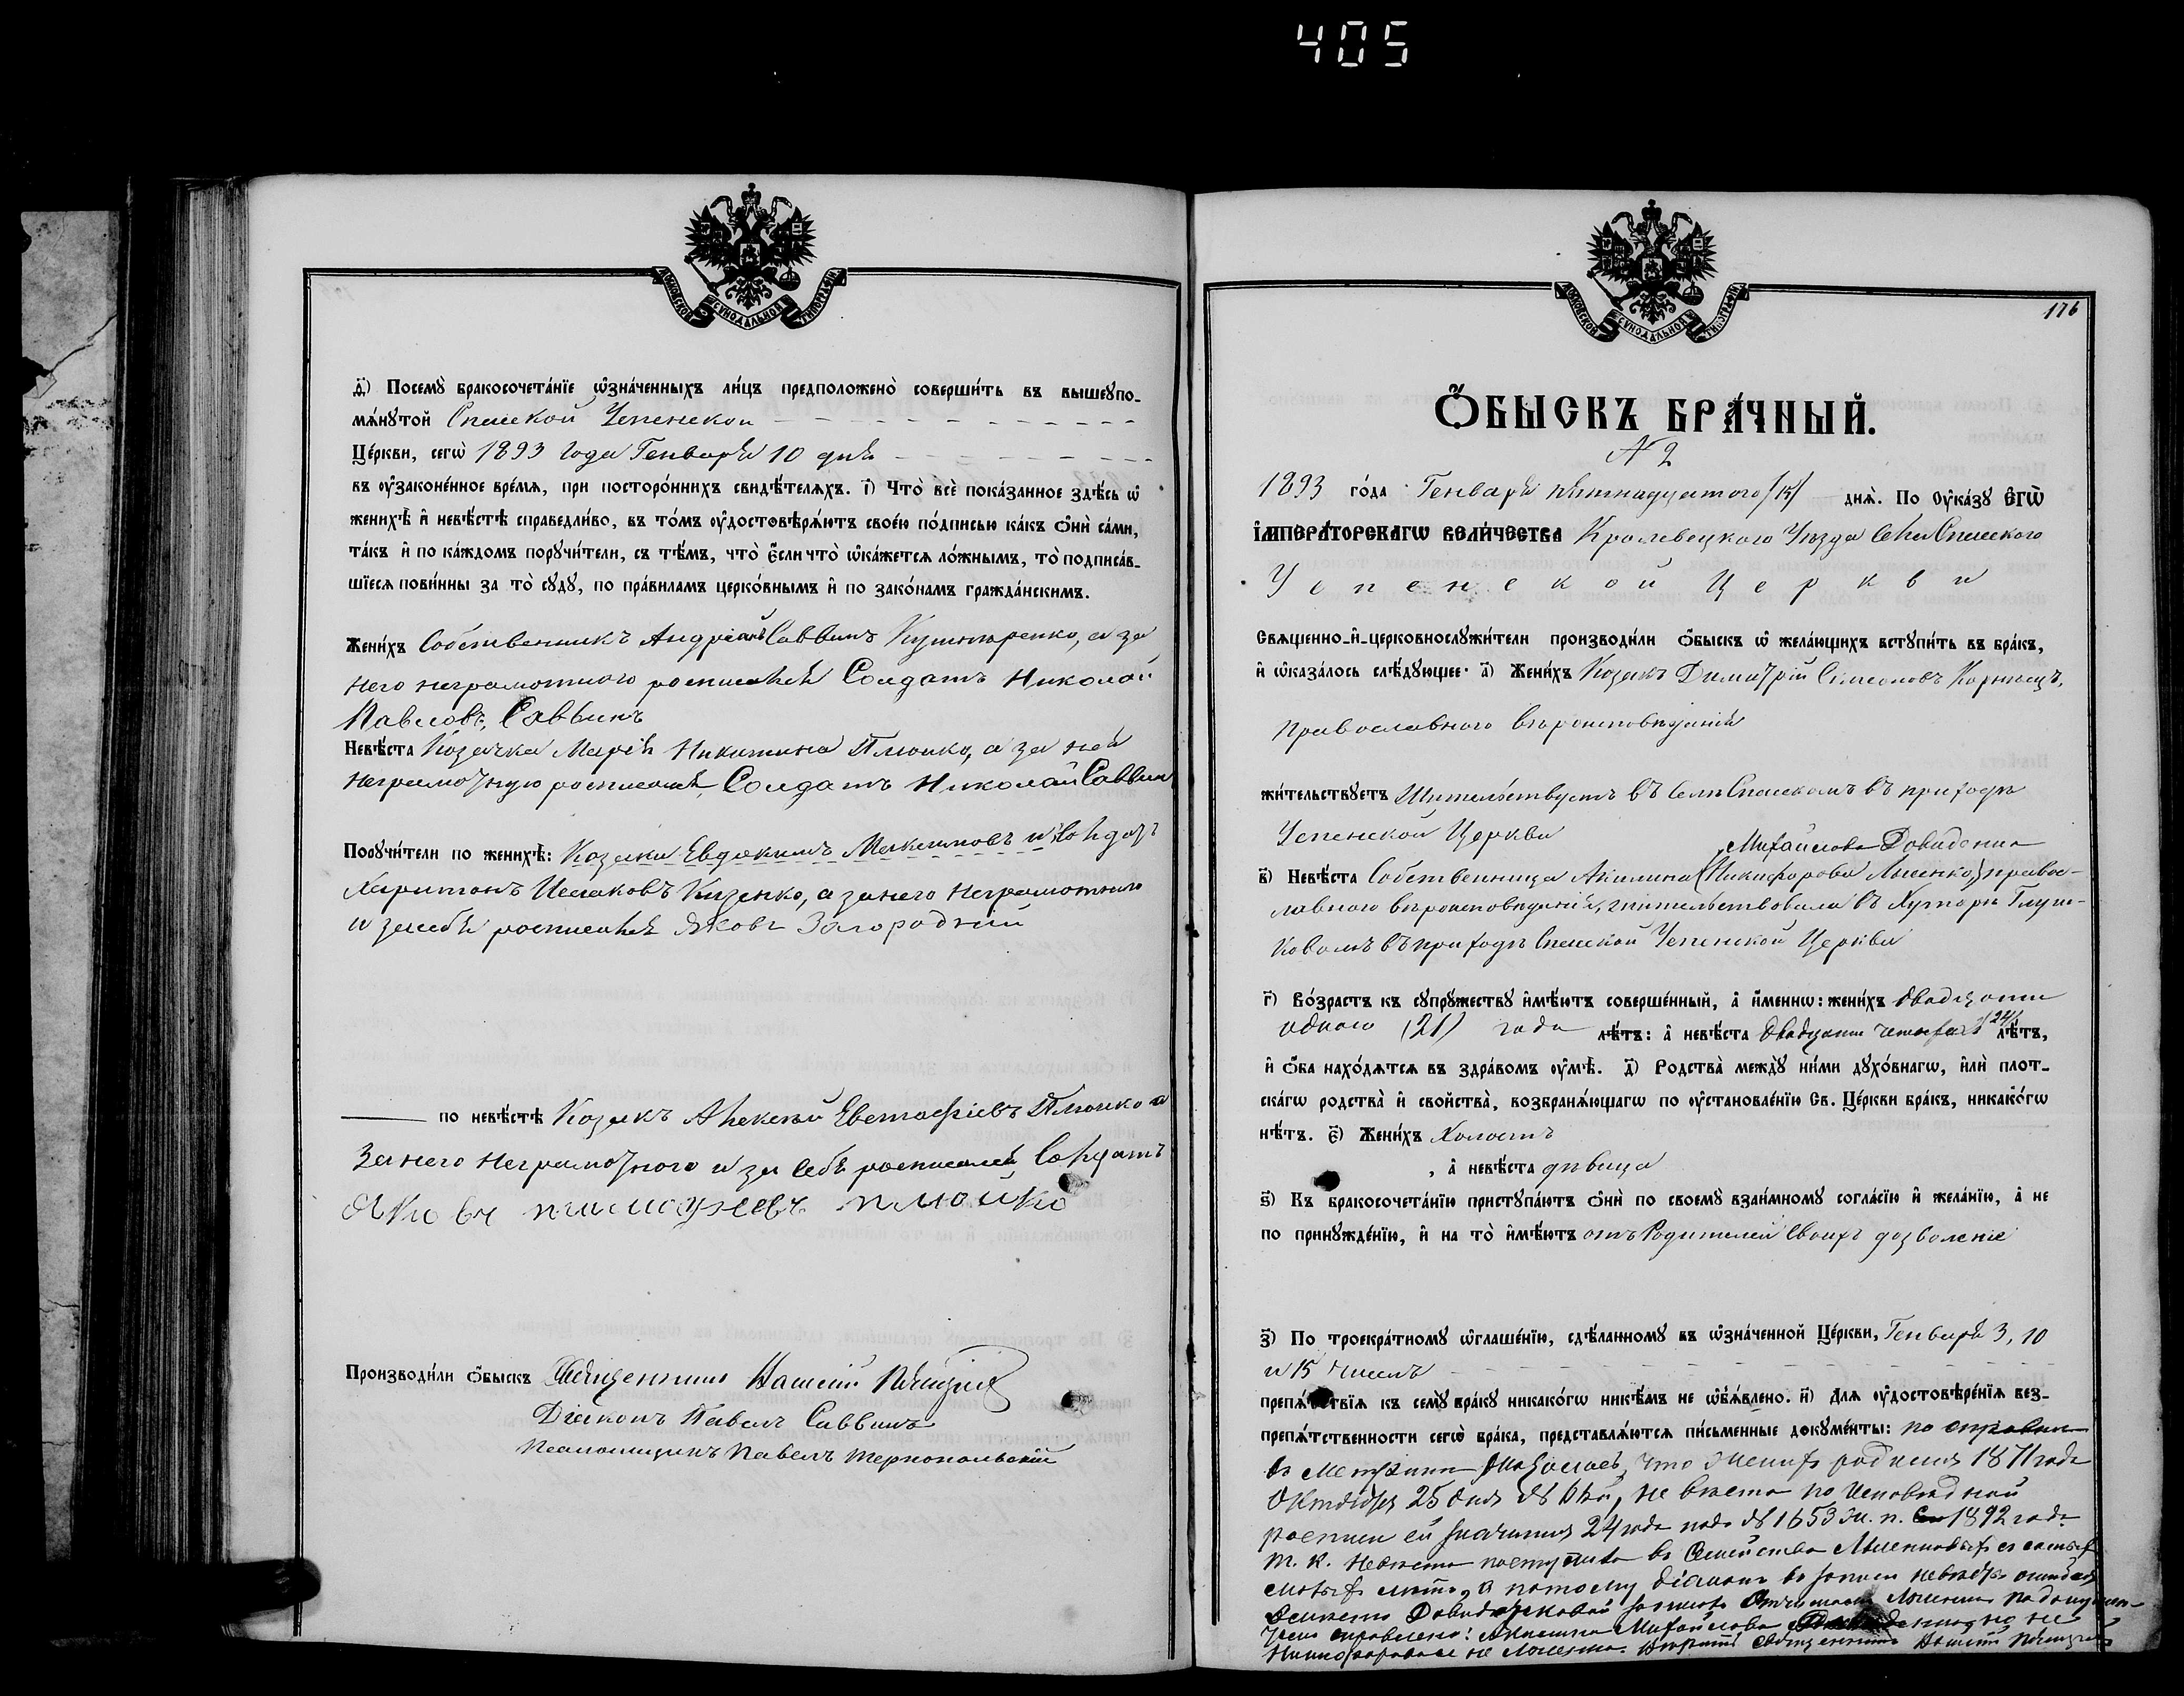 405
МОСКОВСКОЙ СѴНОДАЛЬНОЙ ТИПОГРАФІИ
д҃і) Посемꙋ̀ бракосочета́нїе ѡ҆зна́ченныхъ ли́цъ предположено̀ соверши́ть въ вышеꙋпо-
мѧ́нꙋтой Спаской Успенской
Це́ркви, сегѡ̀ 1893 года Генваря 10 дня
въ ᲂу҆законе́нное вре́мѧ, при посторо́ннихъ свидѣ́телѧхъ. і҃) Что̀ всѐ пока́занное здѣ́сь ѡ҆
женихѣ̀ и҆ невѣ́стѣ справедли́во, въ то́мъ ᲂу҆достовѣрѧ́ютъ свое́ю по́дписью ка́къ ѻ҆нѝ са́ми,
та́къ и҆ по ка́ждомъ порꙋчи́тели, съ тѣ́мъ, что̀ є҆́сли что̀ ѡ҆ка́жетсѧ ло́жнымъ, то̀ подписа́в-
шїесѧ пови́нны за то̀ сꙋдꙋ̀, по пра́виламъ церко́внымъ и҆ по зако́намъ гражда́нскимъ.
Жени́хъ Собственникъ Андрей Саввинъ Кушнаренко, а за
него неграмотного росписался Солдатъ Николай
Павловъ Саввинъ
Невѣ́ста Козачка Марія Никитина Плюйко, а за ней
неграмотную росписался Солдатъ Николай Саввин
Порꙋчи́тели по женихѣ̀: Козаки Евдокимъ Максимовъ и Солдатъ
Харитонъ Исааковъ Кизенко, а за него неграмотного
и за себя росписался Яковъ Загородній
по невѣ́стѣ Козакъ Алексѣй Евстафіевъ Плюйко а
за него неграмотного и за себя росписался Солдатъ
Яковъ Тимофеевъ Плюйко
Производи́ли ѻ҆́быскъ Священникъ
Діаконъ Павелъ Саввинъ
Псаломщикъ Павелъ Тернопольскій
МОСКОВСКОЙ СѴНОДАЛЬНОЙ ТИПОГРАФІИ
176
Ѻ҆́БЫСКЪ БРА́ЧНЫЙ.
N 2
1893 го́да Генваря пятнадцатого /15/ днѧ̀. По ᲂу҆ка́зꙋ Є҆ГѠ̀
И҆МПЕРА́ТОРСКАГѠ ВЕЛИ́ЧЕСТВА Кролевецкого Уѣзда Села Спаского
Успенской Церкви
Свѧщенно-и҆-церковнослꙋжи́тели производи́ли ѻ҆́быскъ ѡ҆ жела́ющихъ встꙋпи́ть въ бра́къ,
и҆ ѡ҆каза́лось слѣ́дꙋющее: а҃) Жени́хъ Козакъ Димитрій Симеоновъ Корніецъ,
православного вѣроисповѣданія
жи́тельствꙋетъ Жительствуетъ въ Селѣ Спаскомъ въ приходѣ
Успенской Церкви
Михайлова Довиденко
в҃) Невѣ́ста Собственница Акилина (Никифорова Лысенко) правос-
лавного вѣроисповѣданія, жительствовала въ Хуторѣ Глуш-
ковомъ въ приходѣ Спаской Успенской Церкви
г҃) Во́зрастъ къ сꙋпрꙋ́жествꙋ и҆мѣ́ютъ соверше́нный, а҆ и҆́меннѡ: жени́хъ двадцати
одного (21) года лѣ́тъ: а҆ невѣ́ста двадцати четырехъ /24/ лѣ́тъ,
и҆ ѻ҆́ба нахо́дѧтсѧ въ здра́вомъ ᲂу҆мѣ̀. д҃) Родства̀ междꙋ̀ ни́ми дꙋхо́внагѡ, и҆лѝ плот-
ска́гѡ родства̀ и҆ свойства̀, возбранѧ́ющагѡ по ᲂу҆становле́нїю Св. Це́ркви бра́къ, никако́гѡ
нѣ́тъ. є҃) Жени́хъ Холостъ
, а҆ невѣ́ста дѣвица
ѕ҃) Къ бракосочета́нїю пристꙋпа́ютъ ѻ҆нѝ по своемꙋ̀ взаи́мномꙋ согла́сїю и҆ жела́нїю, а҆ не
по принꙋжде́нїю, и҆ на то̀ и҆мѣ́ютъ отъ Родителей своихъ дозволеніе
з҃) По троекра́тномꙋ ѡ҆глаше́нїю, сдѣ́ланномꙋ въ ѡ҆зна́ченной Це́ркви, Генваря 3, 10
и 15 чиселъ
препѧ́тствїѧ къ семꙋ̀ бра́кꙋ никако́гѡ никѣ́мъ не ѡ҆б̾ѧ́влено. и҃) Для ᲂу҆достовѣре́нїѧ без-
препѧ́тственности сегѡ̀ бра́ка, представлѧ́ютсѧ пи́сьменные докꙋме́нты: по справкѣ
въ Метрикѣ оказалось, что женихъ родился 1871 года
Октября 25 дня, невѣста по исповѣдной
росписи ей значится 24 года подъ № 1653 1892 года
т. к. невѣста поступила въ семейство
лѣтъ, а потому діаконъ
Акилина Михайлова
Священникъ